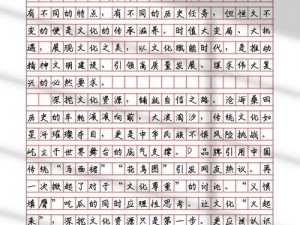 有不同的特点，有不同的历史任务，但恒久不
变的便是文化的传承滋养。时值大变局、大挑
遇，展现文化之美，以文化赋能时代，是推动
精神文明建设、引领高质量发展、谋求伟大复
兴的必然要求。
深挖文化资源，铺就自信之路。沧海桑田
历史的车轮滚滚向前，大浪淘沙，传统文化如
星河璀璨夺目，更是中华民族不惧风险挑战，
屹立于世界舞台的底气支撑。D品牌引用中国
传统“马面裙”“花鸟图”引发网友热议。再
一次掀起了对于“文化尊重”的讨论。“义愤
填膺”吃瓜的同时应理性思考，让文化“火起
来”，深挖文化资源只是第一步。更应该认识